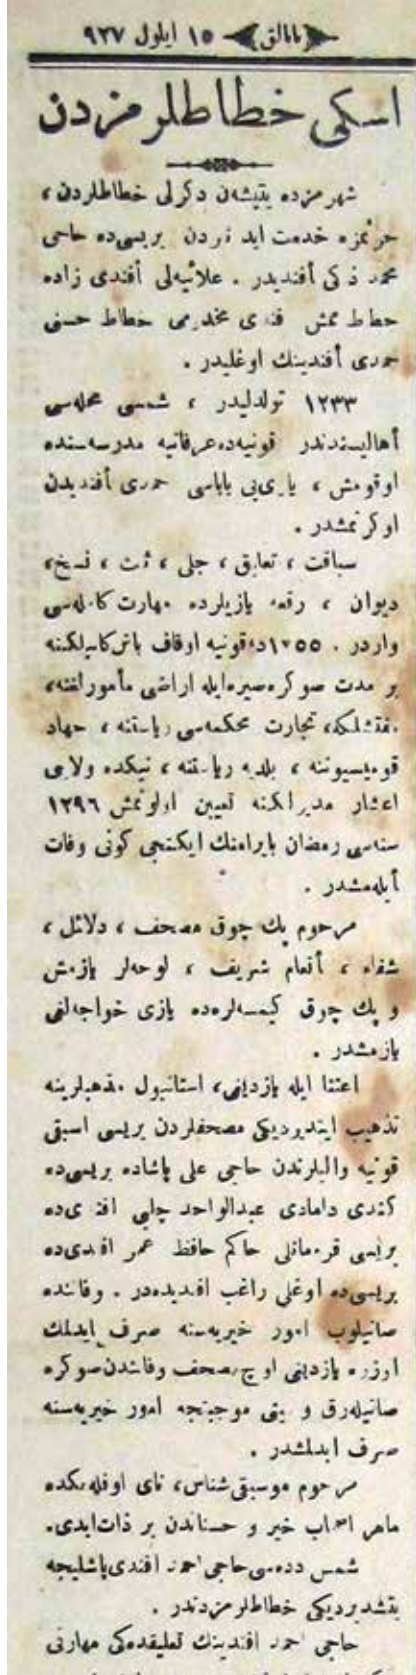 بابالق ١٥ ايلول ٩٢٧
اسكى خطاطلرمزدن
شهرمزده يتيشن دكرلى خطاطلردن ،
خدمت ايدنلردن بريسى‌ده حاجى
محمد ذكى أفنديدر . علائيه‌لى أفندى زاده
خطاط افندى مخدومى خطاط حسنى
حمدى أفندينك اوغليدر .
١٢٣٣ تولدليدر ، شمسى محله‌سى
أهاليسندندر قونيه‌ده عرفانيه مدرسه‌سنده
اوقومش ، يازى‌يى باباسى حمدى أفنديدن
اوكرنمشدر .
سياقت ، تعليق ، جلى ، ثلث ، نسخ ،
ديوان ، رقعه يازيلرده مهارت كامله‌سى
واردر . ١٢٥٥ده قونيه اوقاف باش كاتبلكنه
بر مدت صوكره سيره‌ايله اراضى مأمورلغنه ،
مفتشلكه ، تجارت محكمه‌سى رياستنه ، جهاد
قوميسيوننه ، بلديه رياستنه ، نيكده ولايى
اعشار مديرلكنه تعيين اولونمش ١٢٩٦
سنه‌سى رمضان بايرامنك ايكنجى كونى وفات
أيله‌مشدر .
مرحوم پك چوق مصحف ، دلائل ،
شفاء ، أنعام شريف ، لوحه‌لر يازمش
و پك چوق كيمسه‌لره‌ده يازى خواجه‌لغى
يازمشدر .
اعتنا ايله يازديغى ، استانبول مذهبلرينه
تذهيب ايتديرديكى مصحفلردن بريسى اسبق
قونيه واليلرندن حاجى على پاشاده بريسى‌ده
كندى دامادى عبدالواحد چلبى افندى‌ده
بريسى قره‌مانلى حاكم حافظ عمر افندى‌ده
بريسى‌ده اوغلى راغب افنديده‌در . وفاتنده
صاتيلوب امور خيريه‌سنه صرف ايدلمك
اوزره يازديغى اوچ مصحف وفاتندن صوكره
صاتيله‌رق وصيتى موجبنجه امور خيريه‌سنه
صرف ايدلمشدر .
مرحوم موسيقى‌شناس ، ناى اوفله‌مكده
ماهر اصحاب خير و حسناتدن بر ذات‌ايدى .
شمس دده‌سى حاجى احمد افندى باشليجه
يتشديرديكى خطاطلرمزدندر .
حاجى احمد افندينك تعليقده‌كى مهارتى